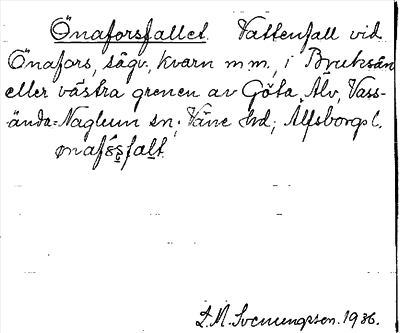 Önaforsfallet. Vattenfall vid
Önafors, sågv., kvarn m.m., i Bruksån
eller västra grenen av Göta Älv, Vass-
ända-Naglum sn; Väne hrd; Älfsborgs l.
L.M. Svenungsson. 1936.